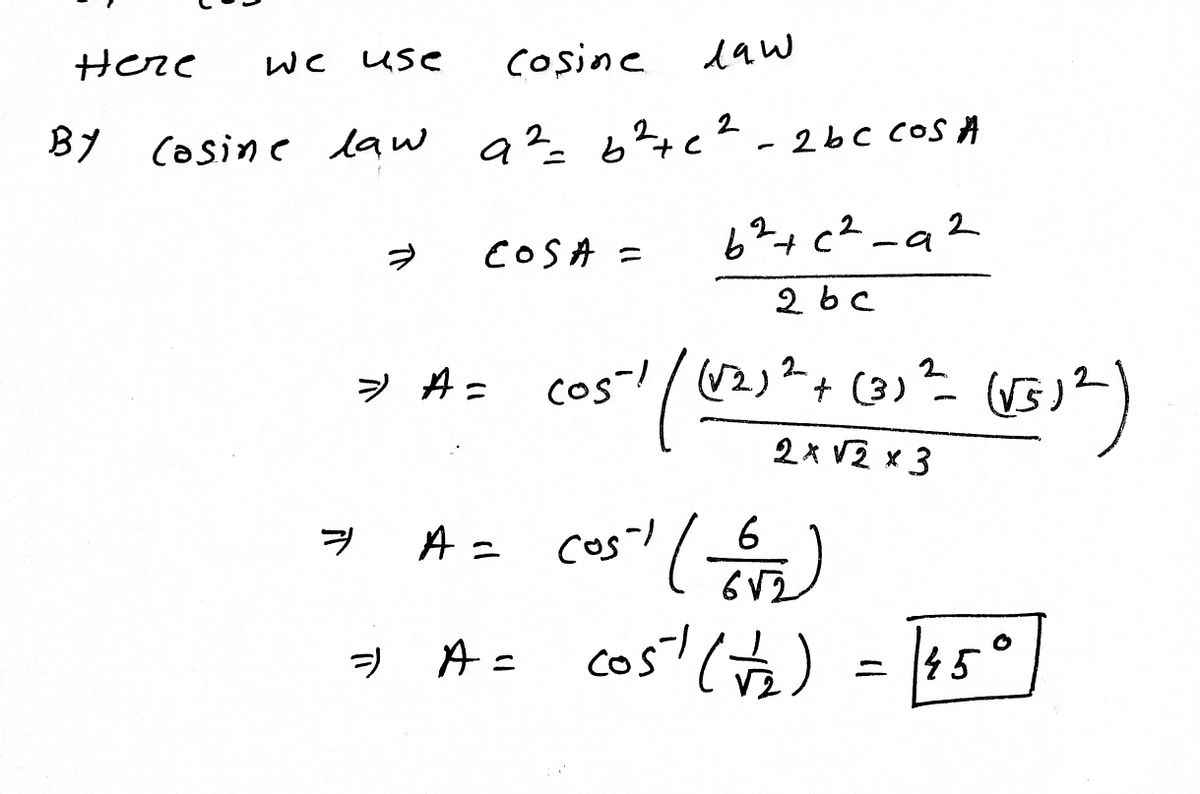 Here we use cosine law
By cosine law a² = b² + c² - 2bc cos A
⇒ cos A = (b² + c² - a²) / 2bc
⇒ A = cos⁻¹ (((√2)² + (3)² - (√5)²) / (2 × √2 × 3))
⇒ A = cos⁻¹ (6 / 6√2)
⇒ A = cos⁻¹ (1/√2) = 45°